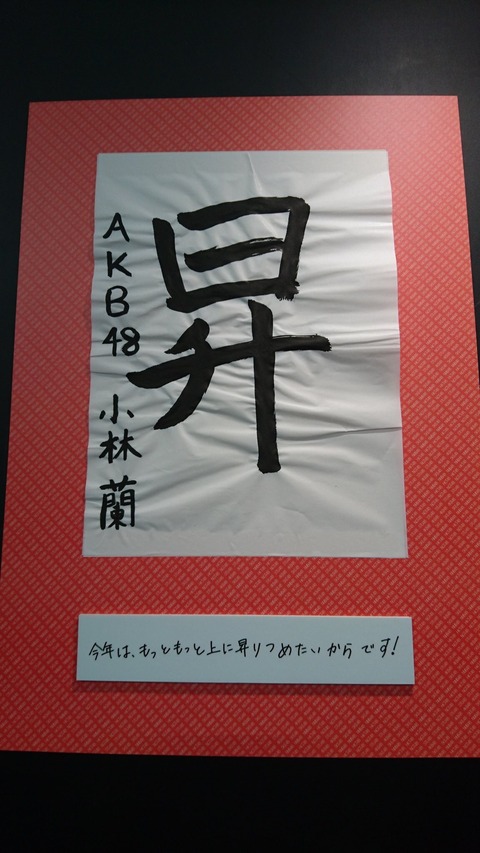 昇
AKB48 小林蘭
今年は、もっともっと上に昇りつめたいからです!